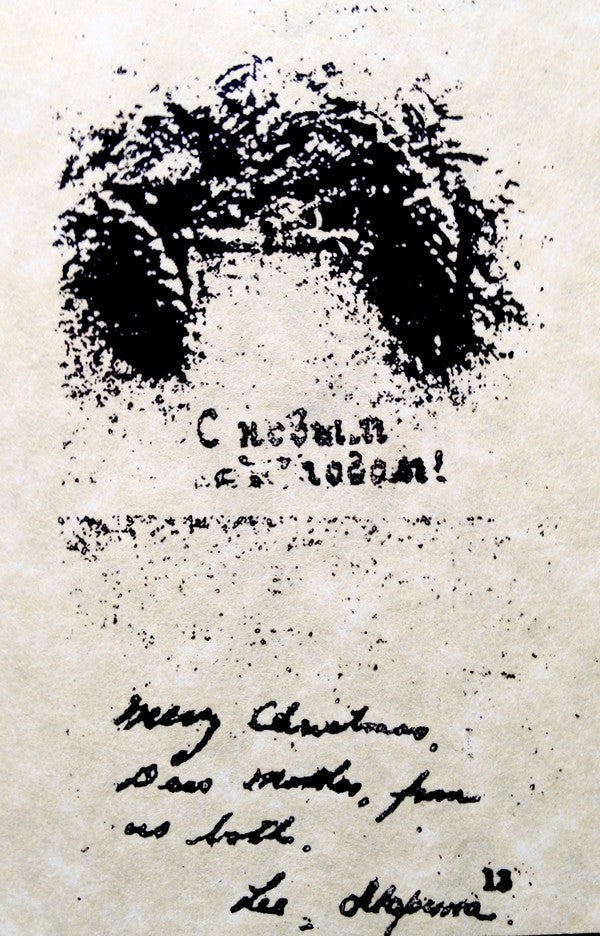 С новым
годом!
Merry Christmas,
Dear Mother, from
us both.
13
Lee,